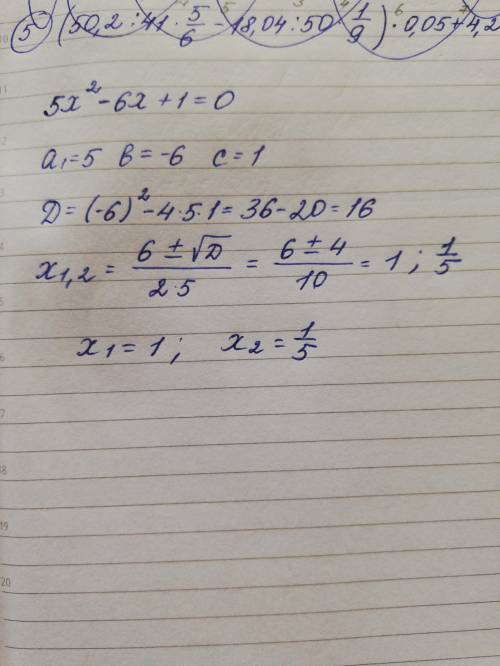 5 (50,2 : 41 · 5/6 - 18,04 : 50 · 1/9) · 0,05 + 4,2
5x² - 6x + 1 = 0
a₁ = 5 b = -6 c = 1
D = (-6)² - 4·5·1 = 36 - 20 = 16
x₁,₂ = (6 ± √D)/(2·5) = (6 ± 4)/10 = 1 ; 1/5
x₁ = 1 ; x₂ = 1/5